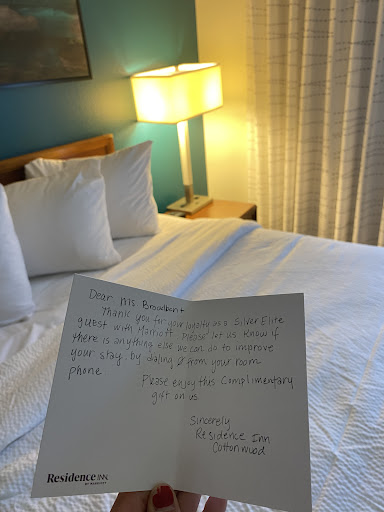 Dear Ms Broadbent
Thank you for your loyalty as a Silver Elite
guest with Marriott. Please let us know if
there is anything else we can do to improve
your stay by dialing 0 from your room
phone
Please enjoy this Complimentary
gift on us
Sincerely
Residence Inn
Cottonwood
Residence INN
BY MARRIOTT